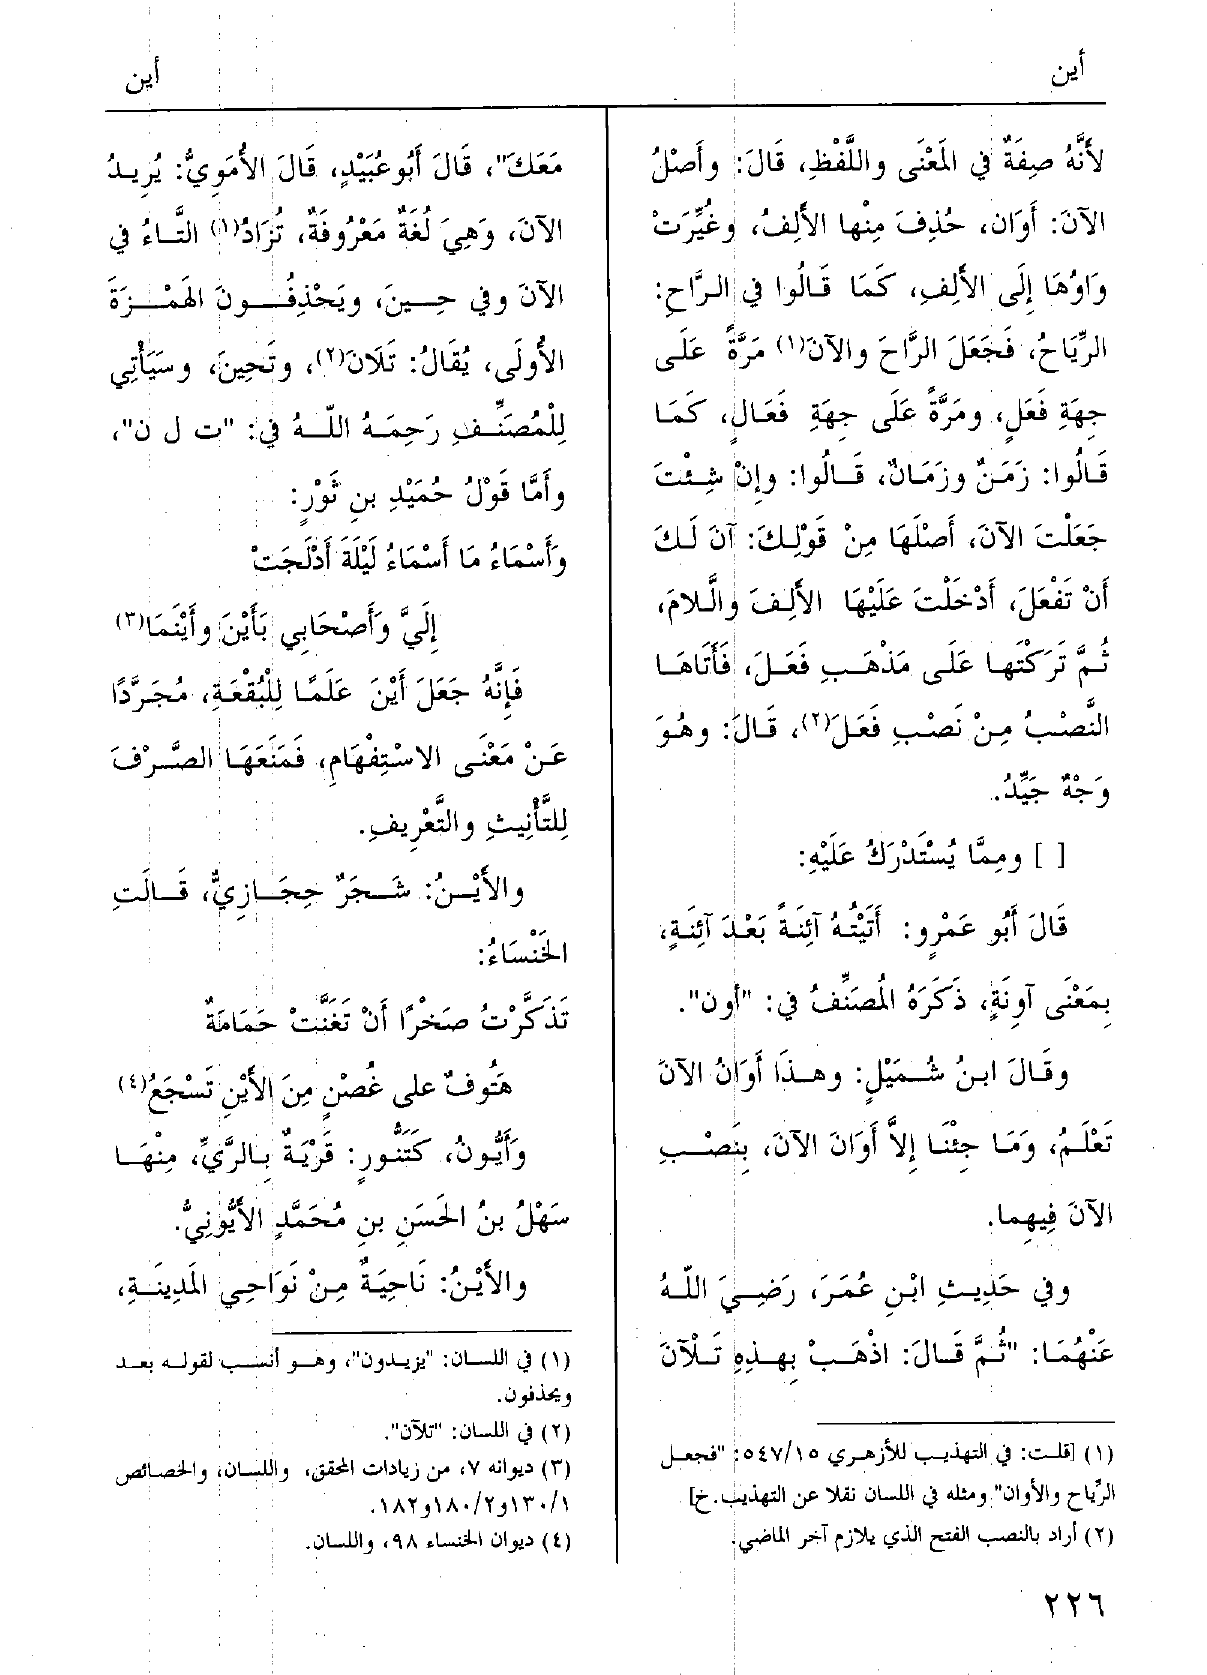 أين
أين
لأَنَّهُ صِفَةٌ في المَعْنَى واللَّفْظِ، قَالَ: وأَصْلُ
الآنَ: أَوَان، حُذِفَ مِنْها الأَلِفُ، وغُيِّرَتْ
وَاوُهَا إِلَى الأَلِفِ، كَمَا قَالُوا في الرَّاحِ:
الرِّيَاحُ، فَجَعَلَ الرَّاحَ والآنَ(١) مَرَّةً عَلَى
جِهَةِ فَعَلٍ، ومَرَّةً عَلَى جِهَةِ فَعَالٍ، كَمَا
قَالُوا: زَمَنٌ وزَمَانٌ، قَالُوا: وإِنْ شِئْتَ
جَعَلْتَ الآنَ، أَصْلَهَا مِنْ قَوْلِكَ: آنَ لَكَ
أَنْ تَفْعَلَ، أَدْخَلْتَ عَلَيْهَا الأَلِفَ والَّلامَ،
ثُمَّ تَرَكْتَها عَلَى مَذْهَبِ فَعَلَ، فَأَتَاهَا
النَّصْبُ مِنْ نَصْبِ فَعَلَ(٢)، قَالَ: وهُوَ
وَجْهٌ جَيِّدٌ.
[ ] ومِمَّا يُسْتَدْرَكُ عَلَيْهِ:
قَالَ أَبُو عَمْرٍو: أَتَيْتُهُ آئِنَةً بَعْدَ آئِنَةٍ،
بِمَعْنَى آوِنَةٍ، ذَكَرَهُ المُصَنِّفُ في: "أون".
وقَالَ ابنُ شُمَيْلٍ: وهذَا أَوَانُ الآنَ
تَعْلَمُ، وَمَا جِئْنَا إِلاَّ أَوَانَ الآنَ، بِنَصْبِ
الآنَ فِيهِما.
وفي حَدِيثِ ابْنِ عُمَرَ، رَضِيَ اللّهُ
عَنْهُمَا: "ثُمَّ قَالَ: اذْهَبْ بِهذِهِ تَلْآنَ
(١) [قلت: في التهذيب للأزهري ٥٤٧/١٥: "فجعل
الرِّياح والأوان" ومثله في اللسان نقلا عن التهذيب.خ]
(٢) أراد بالنصب الفتح الذي يلازم آخر الماضي.
مَعَكَ"، قَالَ أَبُو عُبَيْدٍ، قَالَ الأُمَوِيُّ: يُرِيدُ
الآنَ، وَهِيَ لُغَةٌ مَعْرُوفَةٌ، تُزَادُ(١) التَّاءُ في
الآنَ وفي حِينَ، ويَحْذِفُونَ الهَمْزَةَ
الأُولَى، يُقَالُ: تَلَانَ(٢)، وتَحِينَ، وسَيَأْتِي
لِلْمُصَنِّفِ رَحِمَهُ اللّهُ في: "ت ل ن"،
وأَمَّا قَوْلُ حُمَيْدِ بنِ ثَوْرٍ:
وأَسْمَاءُ مَا أَسْمَاءُ لَيْلَةَ أَدْلَجَتْ
إِلَيَّ وَأَصْحَابِي بَأَيْنَ وأَيْنَمَا(٣)
فَإِنَّهُ جَعَلَ أَيْنَ عَلَمًا لِلْبُقْعَةِ، مُجَرَّدًا
عَنْ مَعْنَى الاسْتِفْهَامِ، فَمَنَعَهَا الصَّرْفَ
لِلتَّأْنِيثِ والتَّعْرِيفِ.
والأَيْنُ: شَجَرٌ حِجَازِيٌّ، قَالَتِ
الخَنْسَاءُ:
تَذَكَّرْتُ صَخْرًا أَنْ تَغَنَّتْ حَمَامَةٌ
هَتُوفٌ على غُصْنٍ مِنَ الأَيْنِ تَسْجَعُ(٤)
وَأَيُّونُ، كَتَنُّورٍ: قَرْيَةٌ بِالرَّيِّ، مِنْهَا
سَهْلُ بنُ الحَسَنِ بنِ مُحَمَّدٍ الأَيُّونِيُّ.
والأَيْنُ: نَاحِيَةٌ مِنْ نَوَاحِي المَدِينَةِ،
(١) في اللسان: "يزيدون"، وهو أنسب لقوله بعد
ويحذفون.
(٢) في اللسان: "تلآن".
(٣) ديوانه ٧، من زيادات المحقق، واللسان، والخصائص
١٣٠/١و١٨٠/٢و١٨٢.
(٤) ديوان الخنساء ٩٨، واللسان.
٢٢٦